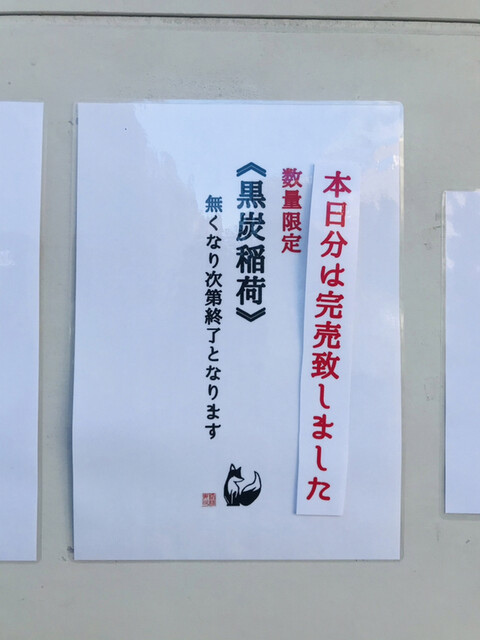 本日分は完売致しました
数量限定
《黒炭稲荷》
無くなり次第終了となります